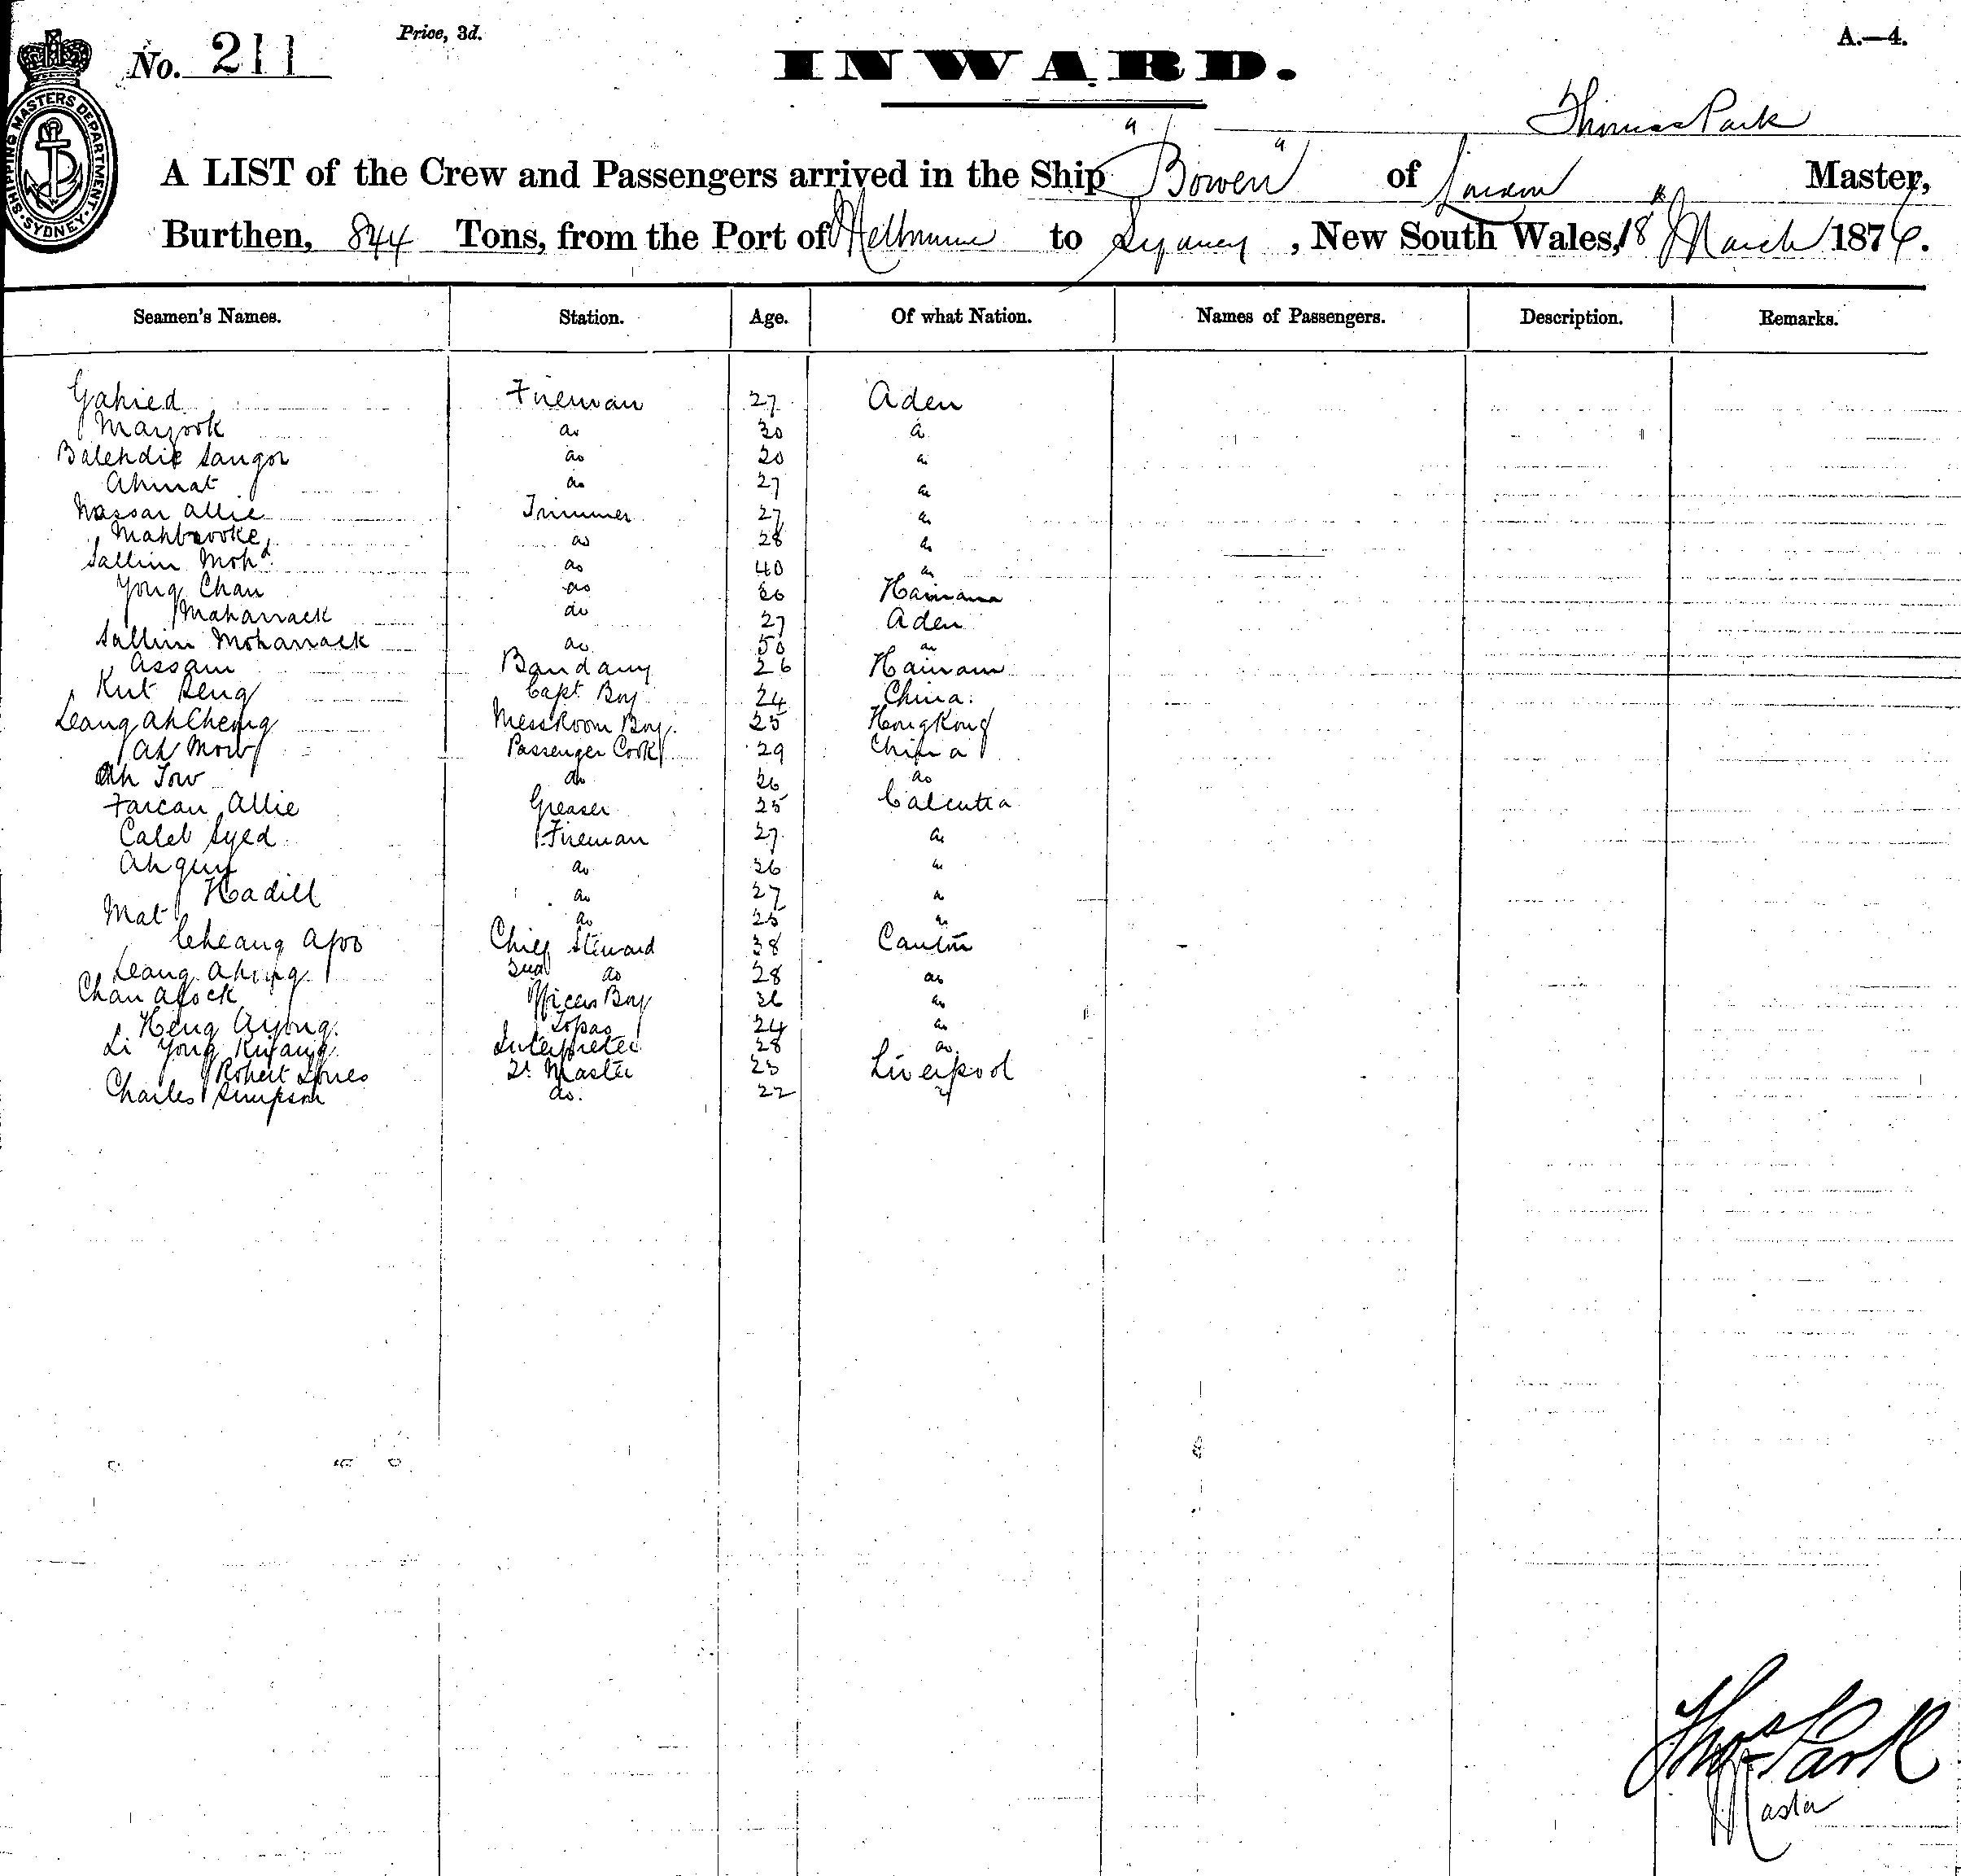 No. 211 Price, 3d. INWARD. A.—4.
SHIPPING MASTERS DEPARTMENT SYDNEY
Thomas Park
A LIST of the Crew and Passengers arrived in the Ship "Bowen" of London Master,
Burthen, 844 Tons, from the Port of Melbourne to Sydney, New South Wales, 18th March 1876.
Seamen's Names. Station. Age. Of what Nation. Names of Passengers. Description. Remarks.
Gahied Fireman 27 Aden
Marzook do 30 do
Balehdie Sangor do 20 do
Ahmat do 27 do
Nassar Allie Trimmer 27 do
Mahbrooke do 28 do
Sallim Mohd do 40 do
Yong Chan do 26
Mabarrack do 27 Aden
Sallim Mobarrack do 50 do
Assam Bandary 26 Hainam
Kut Seng Capt Boy 24 China.
Leang Ah Cheong Mess Room Boy. 25 Hong Kong
Ah Mow Passenger Cook 29 China
Ah Tow do 26 do
Farcan Allie Greaser 25 Calcutta
Caleb Syed Fireman 27 do
do 26 do
Hadill do 27 do
Mat do 25 do
Cheang Apoo Chief Steward 38 Canton
Leang 2nd do 28 do
Chan Afock Officers Boy 26 do
Heng Ayong. Topas 24 do
Li Yong Kwang. Interpreter 28 do
Robert Jones Qr Master 23 Liverpool
Charles Simpson do. 22 "
Thos Park
Master